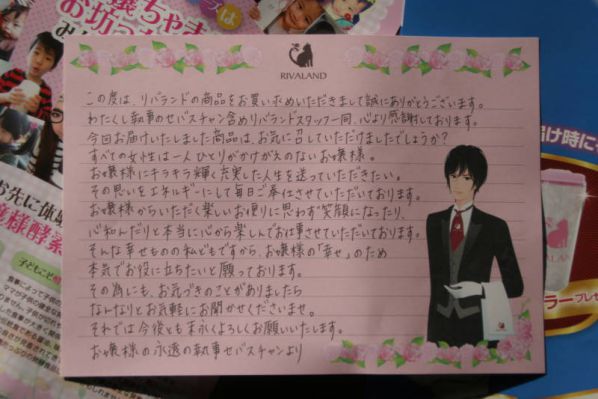 嬢ちゃま
お坊っ
RIVALAND
この度は、リバランドの商品をお買い求めいただきまして誠にありがとうございます。
わたくし執事のセバスチャン含めリバランドスタッフ一同、心より感謝しております。
今回お届けいたしました商品は、お気に召していただけましたでしょうか？
すべての女性は一人ひとりがかけがえのないお嬢様。
お嬢様にキラキラ輝く充実した人生を送っていただきたい。
その思いをエネルギーにして毎日ご奉仕させていただいております。
お嬢様からいただく楽しいお便りに思わず笑顔になったり、
心和んだりと本当に心から楽しんでお仕事させていただいております。
そんな幸せものの私どもですから、お嬢様の「幸せ」のため
本気でお役に立ちたいと願っております。
その為にも、お気づきのことがありましたら
なんなりとお気軽にお聞かせくださいませ。
それでは今後とも末永くよろしくお願いいたします。
お嬢様の永遠の執事セバスチャンより
RIVALAND
お先に体験
酵素
子どもこど
届け時に
ラープレゼ